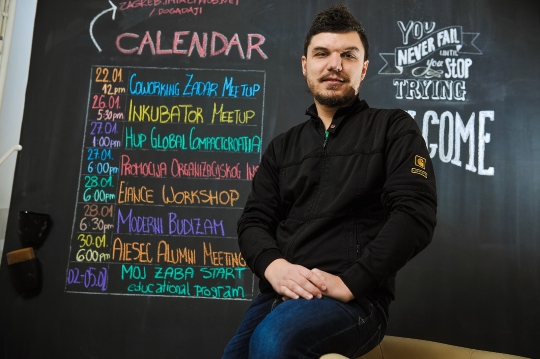 / DOGAĐAJI
CALENDAR
22.01. 12pm COWORKING ZADAR MEETUP
26.01. 5:30pm INKUBATOR MEETUP
27.01. 1:00pm HUP GLOBAL COMPACT CROATIA
27.01. 6:00pm PROMOCIJA ORGANIZACIJSKOG INS
28.01. 6:00pm ELANCE WORKSHOP
28.01. 6:30pm MODERNI BUDIZAM
30.01. 6:00pm AIESEC ALUMNI MEETING
02.-05.02 MOJ ZABA START
educational program
YOU
NEVER FAIL
UNTIL
You STOP
TRYING
COME